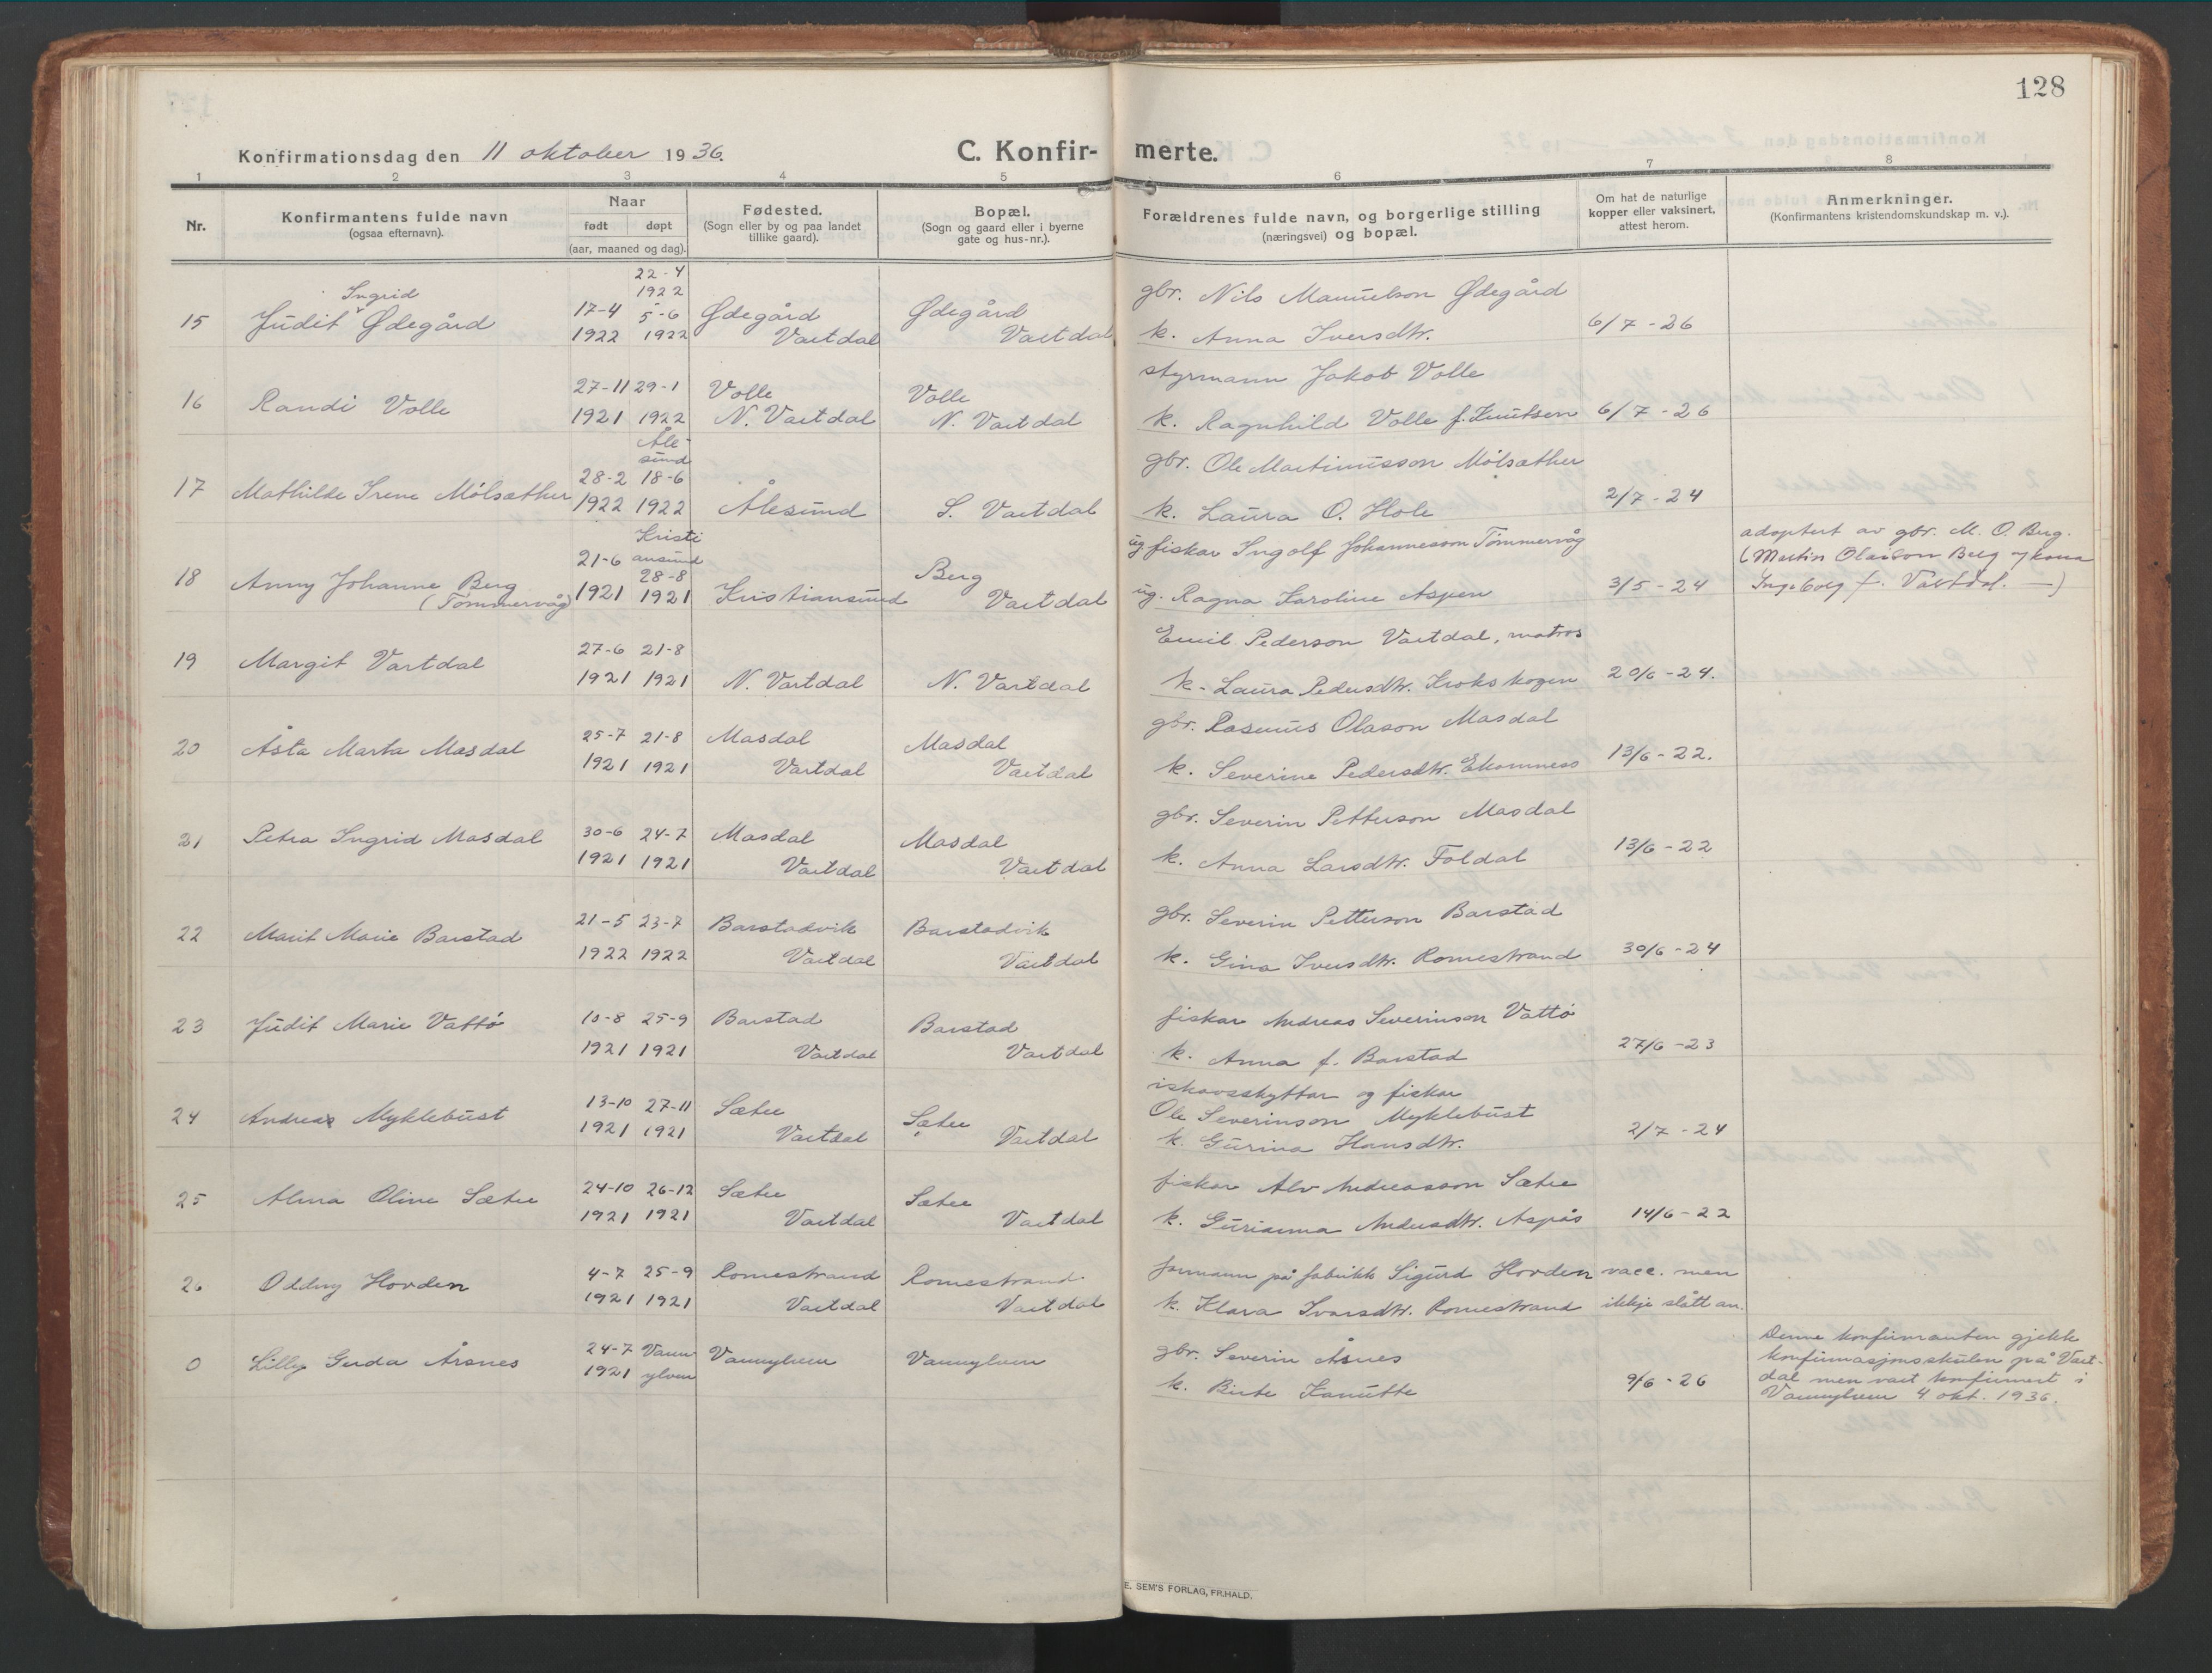 128
Konfirmationsdag den 11 oktober 1936. C. Konfir- merte.
1 2 3 4 5 6 7 8
Nr.
Konfirmantens fulde navn
(ogsaa efternavn).
Naar
født døpt
(aar, maaned og dag).
Fødested.
(Sogn eller by og paa landet
tillike gaard).
Bopæl.
(Sogn og gaard eller i byerne
gate og hus-nr.).
Forældrenes fulde navn, og borgerlige stilling
(næringsvei) og bopæl.
Om hat de naturlige
kopper eller vaksinert,
attest herom.
Anmerkninger.
(Konfirmantens kristendomskundskap m. v.).
22-4
1922
Ingrid
15 Judit Ødegård 17-4 5-6 Ødegård Ødegård gbr. Nils Manuelson Ødegård
1922 1922 Vartdal Vartdal k. Anna Iversdtr. 6/7-26
16 Randi Volle 27-11 29-1 Volle Volle styrmann Jakob Volle
1921 1922 N. Vartdal N. Vartdal k. Ragnhild Volle f. Knutsen 6/7-26
Åle-
sund
17 Mathilde Irene Mólsæther 28-2 18-6 gbr. Ole Martinusson Mólsæther
1922 1922 Ålesund S. Vartdal k. Laura O. Hole 2/7-24
Kristi
ansund
18 Anny Johanne Berg 21-6 28-8 Berg ug. fiskar Ingolf Johannesson Tömmervåg adoptert av gbr. M. O. Berg.
(Tömmervåg) 1921 1921 Kristiansund Vartdal ug. Ragna Karoline Aspen 3/5-24 (Martin Olaison Berg og kona
Ingeborg f. Vartdal. —)
19 Margit Vartdal 27-6 21-8 Emil Pederson Vartdal, matros
1921 1921 N. Vartdal N. Vartdal k. Laura Pedersdtr. Krokskogen 20/6-24.
20 Åsta Marta Masdal 25-7 21-8 Masdal Masdal gbr. Rasmus Olason Masdal
1921 1921 Vartdal Vartdal k. Severine Pedersdtr. Ekornness 13/6-22.
21 Petra Ingrid Masdal 30-6 24-7 Masdal Masdal gbr. Severin Petterson Masdal
1921 1921 Vartdal Vartdal k. Anna Larsdtr. Foldal 13/6-22
22 Marit Marie Barstad 21-5 23-7 Barstadvik Barstadvik gbr. Severin Petterson Barstad
1922 1922 Vartdal Vartdal k. Gina Iversdtr. Romestrand 30/6-24
23 Judit Marie Vattó 10-8 25-9 Barstad Barstad fiskar Andreas Severinson Vattó
1921 1921 Vartdal Vartdal k. Anna f. Barstad 27/6-23
24 Andreas Myklebust 13-10 27-11 Sætre Sætre ishavsskyttar og fiskar
1921 1921 Vartdal Vartdal Ole Severinson Myklebust
k. Gurina Hansdtr. 2/7-24
25 Alma Oline Sætre 24-10 26-12 Sætre Sætre fiskar Alv Andreasson Sætre
1921 1921 Vartdal Vartdal k. Gurianna Andersdtr. Aspås 14/6-22
26 Oddny Hovden 4-7 25-9 Romestrand Romestrand formann på fabrikk Sigurd Hovden vacc. men
1921 1921 Vartdal Vartdal k. Klara Ivarsdtr. Romestrand ikkje slått an.
0 Lilly Gerda Årsnes 24-7 Vann- Vannylven Vannylven gbr. Severin Åsnes Denne konfirmanten gjekk
1921 ylven k. Birte Kanutte 9/6-26 konfirmasjonsskulen på Vart-
dal men vart konfirmert i
Vannylven 4. okt. 1936.
E. SEM'S FORLAG, FR.HALD.